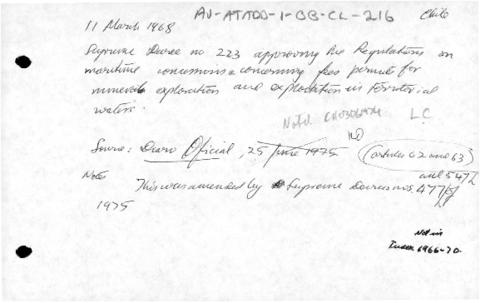 AV-ATADD-1-BB-CL-216
Chile
11 March 1968
Supreme Decree no 223 approving the Regulations on
maritime concessions & concerning fees permits for
minerals exploration and exploitation in territorial
waters.
LC
NO
Source: Diario Oficial, 25 June 1975 (articles 62 and 63)
and 547/
Note
This was amended by Supreme Decree nos 477/
1975
Not in
Index 1966-70